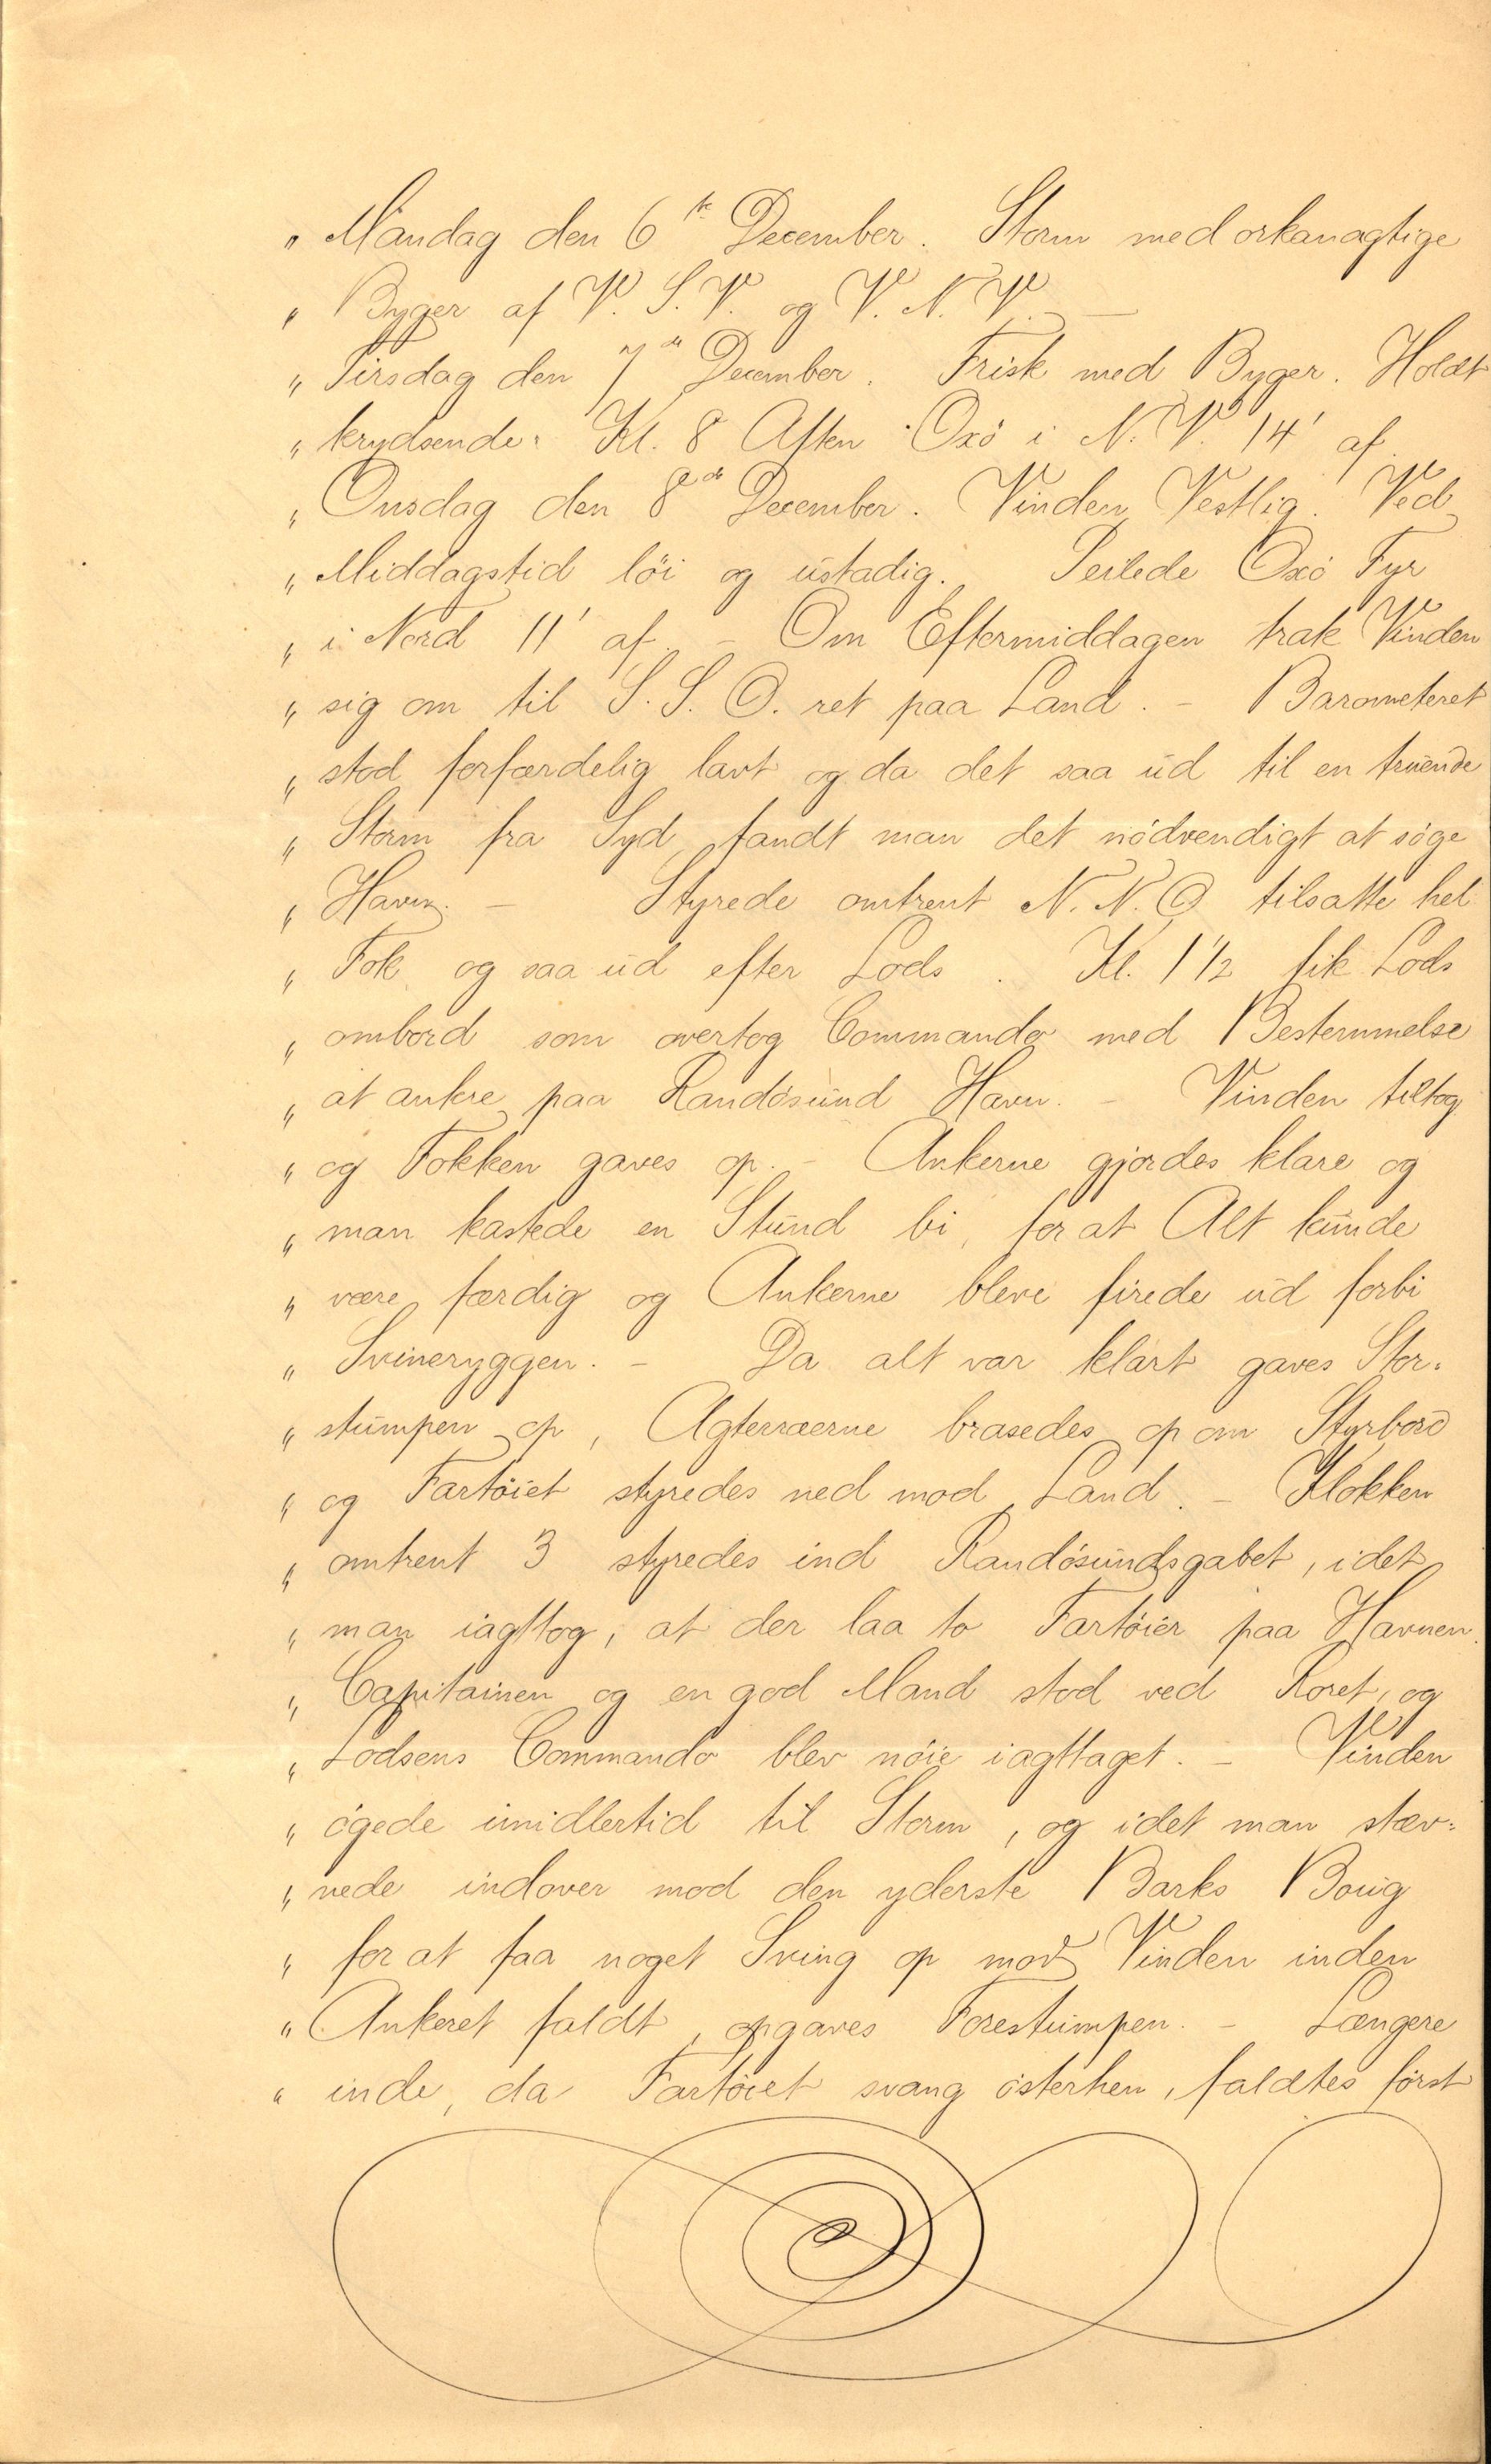 „ Mandag den 6te December. Storm med orkanagtige
„ Byger af V. S. V. og V. N. V. —
„ Tirsdag den 7de December. Frisk med Byger. Holdt
„ krydsende. Kl. 8 Aften Oxö i N. V. 14' af.
„ Onsdag den 8de December. Vinden Vestlig. Ved
„ Middagstid löi og ustadig. Peilede Oxö Fyr
„ i Nord 11' af. – Om Eftermiddagen trak Vinden
„ sig om til S. S. O. ret paa Land. – Barometeret
„ stod forfærdelig lavt og da det saa ud til en truende
„ Storm fra Syd, fandt man det nödvendigt at söge
„ Havn. – Styrede omtrent N. N. O tilsatte hel
„ Fok og saa ud efter Lods. Kl. 1 1/2 fik Lods
„ ombord som overtog Commando med Bestemmelse
„ at ankre paa Randösund Havn. – Vinden tiltog
„ og Fokken gaves op. – Ankerne gjordes klare og
„ man kastede en Stund bi, for at Alt kunde
„ være færdig og Ankerne bleve firede ud forbi
„ Svineryggen. – Da alt var klart gaves Stor-
„ stumpen op, Agterræerne brasedes op om Styrbord
„ og Fartöiet styredes ned mod Land. – Klokken
„ omtrent 3 styredes ind Randösundsgabet, idet
„ man iagttog, at der laa to Fartöier paa Havnen.
„ Capitainen og en god Mand stod ved Roret, og
„ Lodsens Commando blev nöie iagttaget. – Vinden
„ ögede imidlertid til Storm, og idet man stæv-
„ nede indover mod den yderste Barks Boug
„ for at faa noget Sving op mod Vinden inden
„ Ankeret faldt, opgaves Forestumpen. – Længere
„ inde, da Fartöiet svang österhen, faldtes först